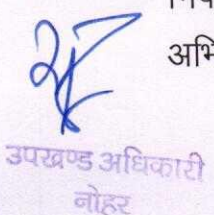 अभि
उपखण्ड अधिकारी
नोहर